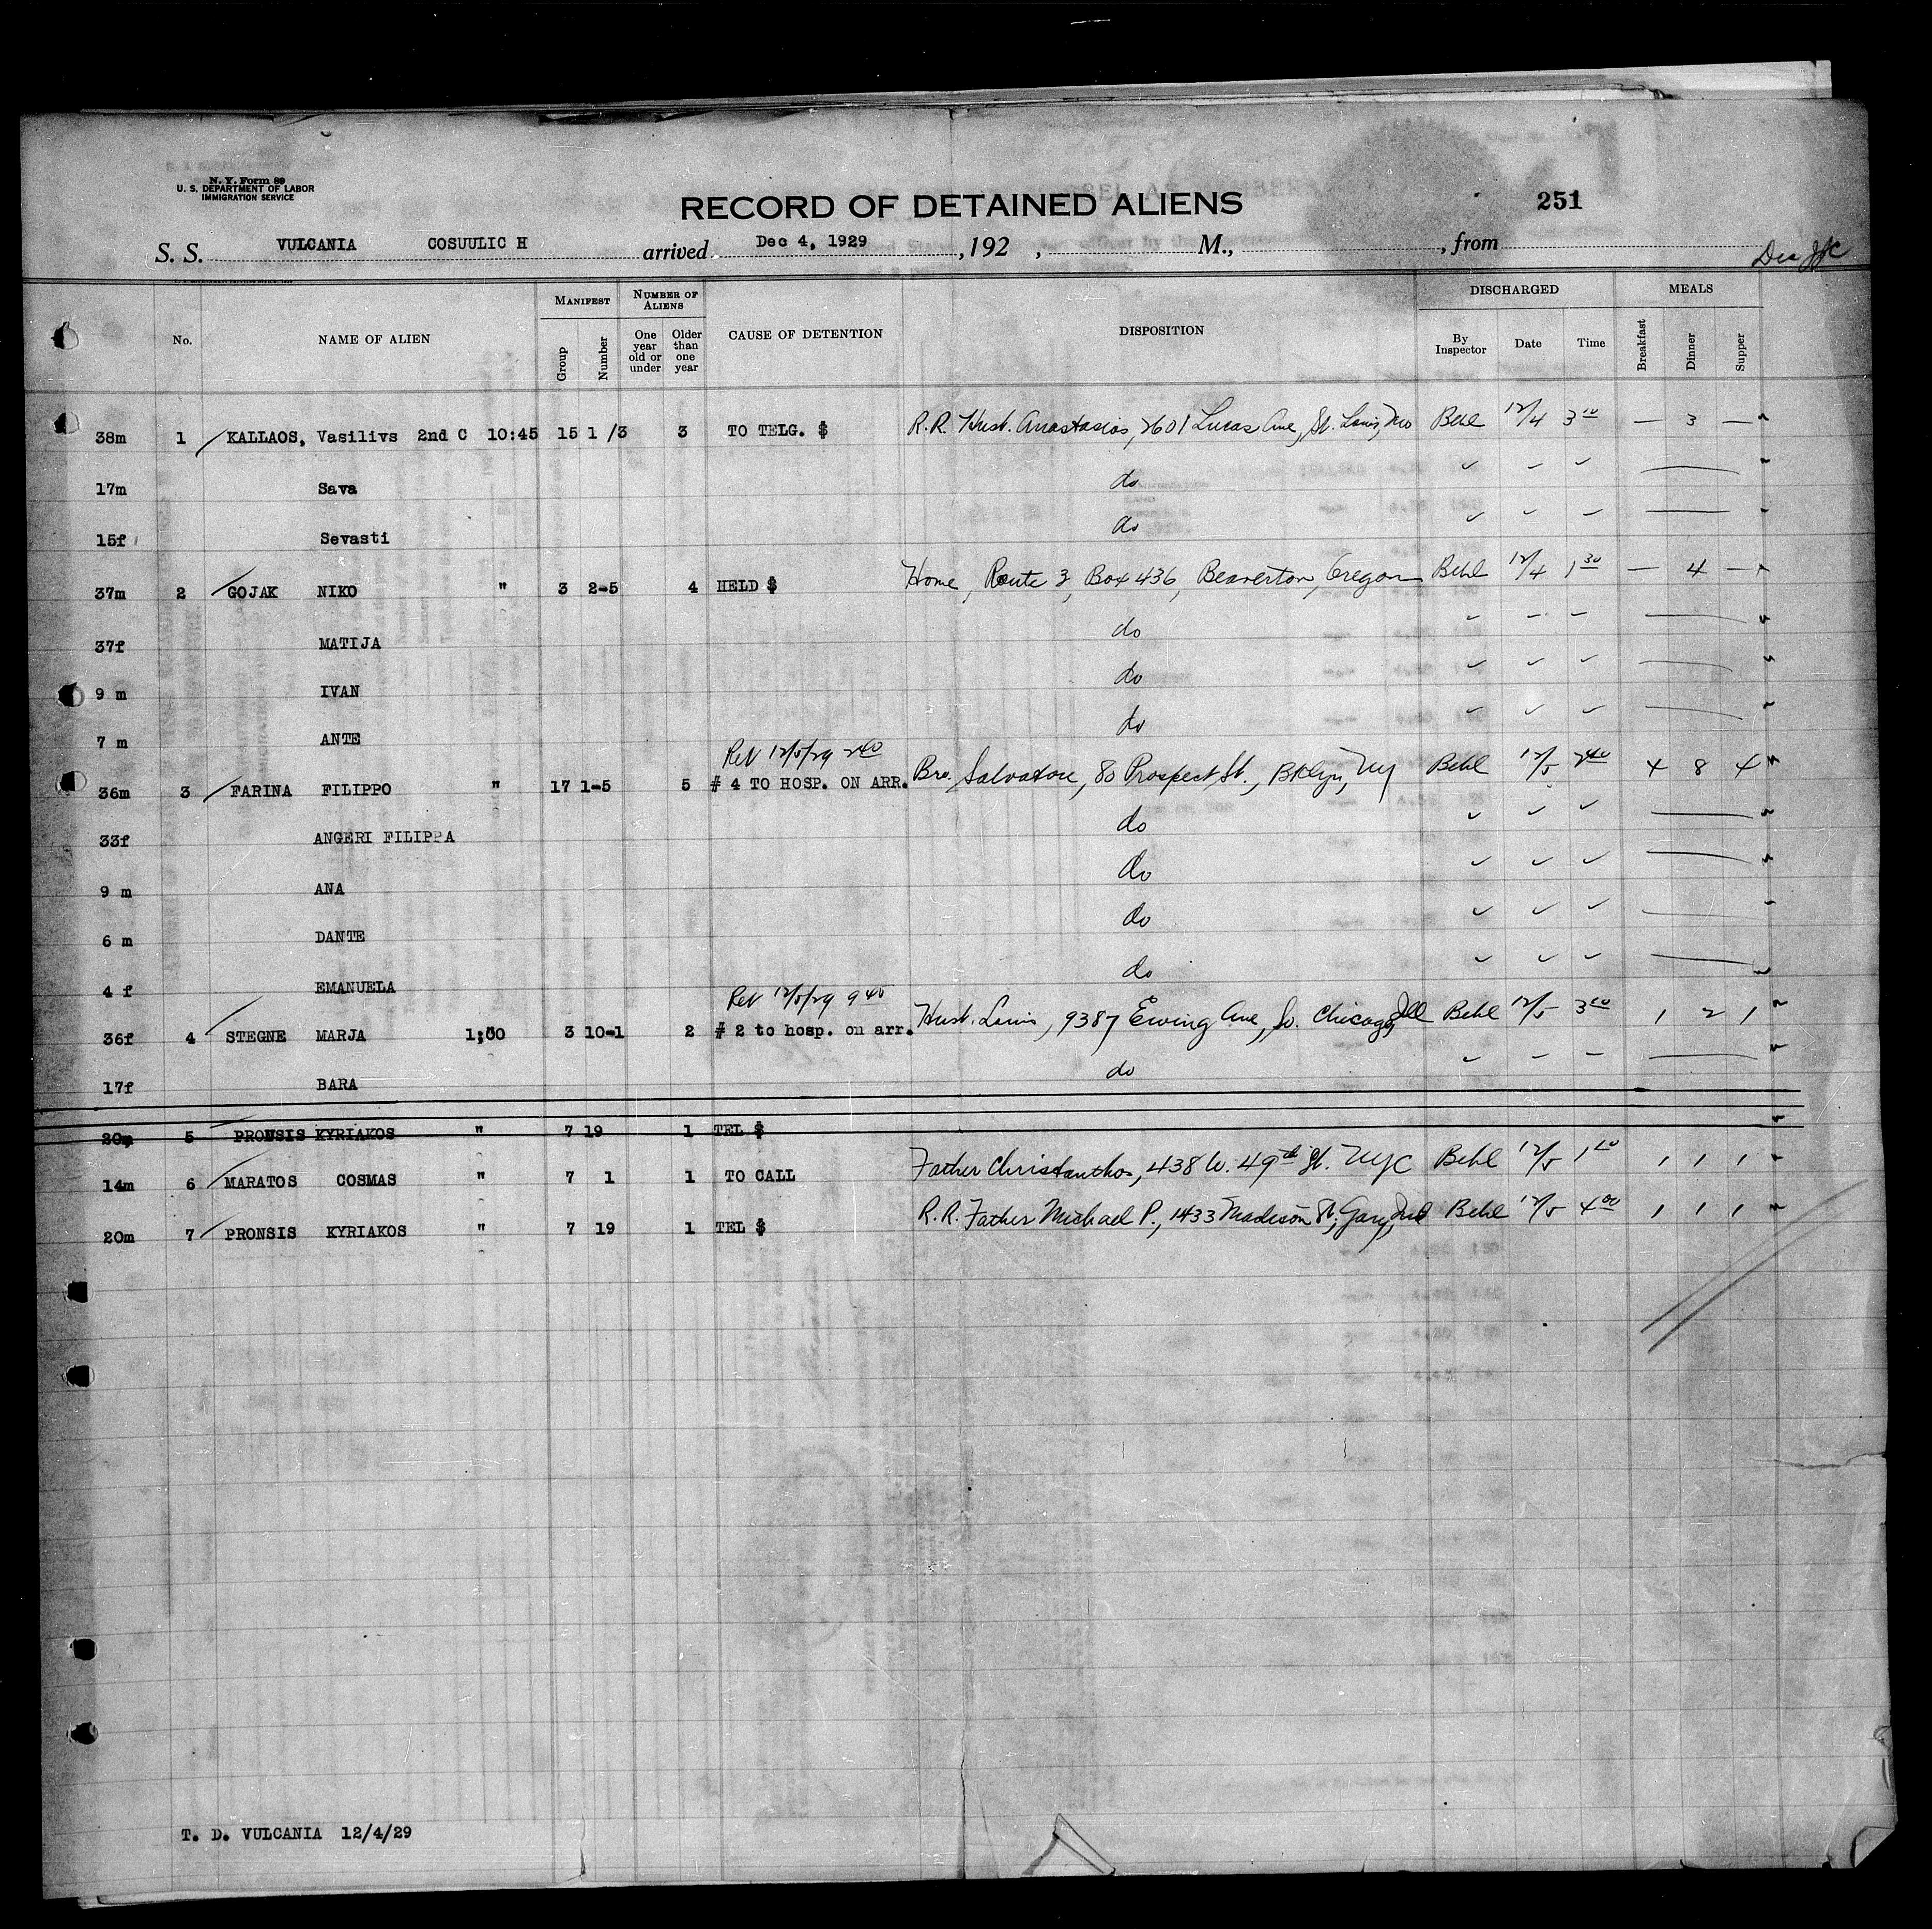 N. Y. Form 89
U. S. DEPARTMENT OF LABOR
IMMIGRATION SERVICE
RECORD OF DETAINED ALIENS
251
S. S. VULCANIA COSUULIC H arrived Dec 4, 1929, 192 , M., , from
No. NAME OF ALIEN MANIFEST Group Number NUMBER OF ALIENS One year old or under Older than one year CAUSE OF DETENTION DISPOSITION DISCHARGED By Inspector Date Time MEALS Breakfast Dinner Supper
38m 1 KALLAOS, Vasilivs 2nd C 10:45 15 1 /3 3 TO TELG. $ R.R. Hust. Anastasios, 2601 Lucas Ave, St. Louis, Mo Behl 12/4 3 10 — 3 —
17m Sava do
15f Sevasti do
37m 2 GOJAK NIKO " 3 2-5 4 HELD $ Home, Route 3, Box 436, Beaverton, Oregon Behl 12/4 1 30 — 4 —
37f MATIJA do
9 m IVAN do
7 m ANTE do
Ret 12/5/29 2 40
36m 3 FARINA FILIPPO " 17 1-5 5 # 4 TO HOSP. ON ARR. Bro. Salvatore, 80 Prospect St., Bklyn, NY Behl 12/5 2 40 4 8 4
33f ANGERI FILIPPA do
9 m ANA do
6 m DANTE do
4 f EMANUELA do
Ret 12/5/29 9 40
36f 4 STEGNE MARJA 1;00 3 10-1 2 # 2 to hosp. on arr. Hust. Louis, 9387 Ewing Ave, So. Chicago, Ill Behl 12/5 3 00 1 2 1
17f BARA do
20m 5 PRONSIS KYRIAKOS " 7 19 1 TEL $
14m 6 MARATOS COSMAS " 7 1 1 TO CALL Father Christanthos, 438 W. 49th St. NYC Behl 12/5 1 10 1 1 1
20m 7 PRONSIS KYRIAKOS " 7 19 1 TEL $ R.R. Father Michael P., 1433 Madison St, Gary, Ind Behl 12/5 4 00 1 1 1
T. D. VULCANIA 12/4/29